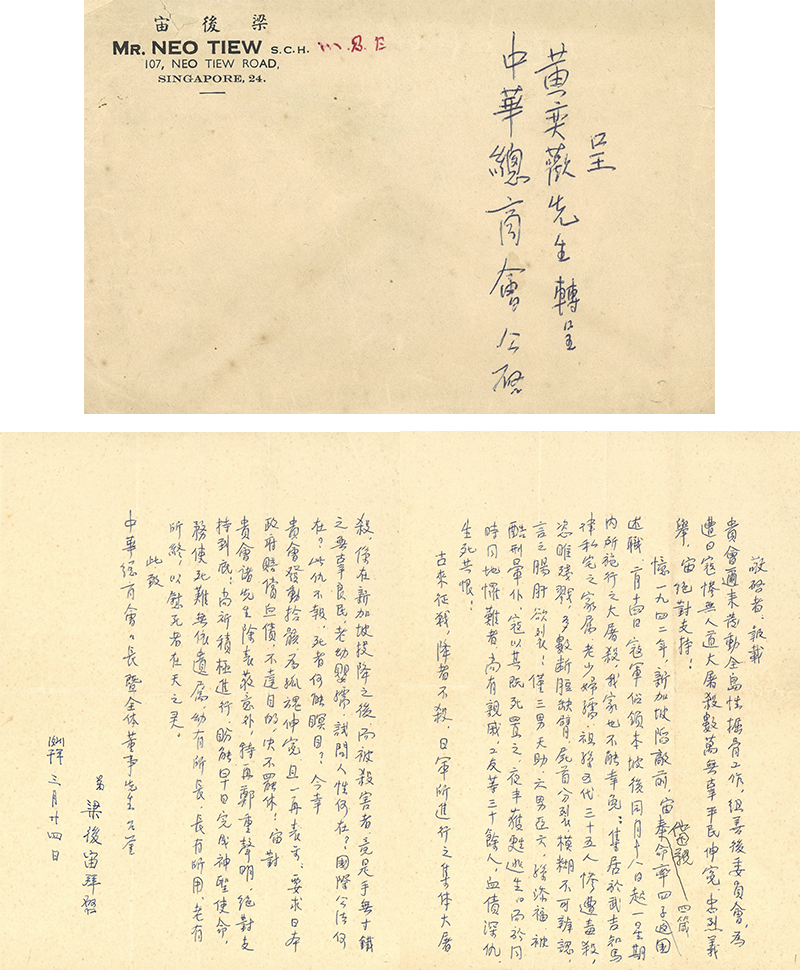 梁後宙
MR. NEO TIEW S.C.H. M.B.E
107, NEO TIEW ROAD,
SINGAPORE, 24.
呈
黄奕歡先生轉呈
中華總商會公啓
敬啓者:報載
貴會邇來為動全島性掘骨工作,組善後委員會,為
遭日寇慘無人道大屠殺數萬無辜平民伸冤,忠烈義
舉,宙絕對支持!
憶一九四二年,新加坡陷敵前,宙奉命率四子迴國
述職,二月十五日寇軍佔領本坡後,同月十八日起一星期
內所施行之大屠殺,我家也不能幸免:集居於武吉知馬
律私宅之家屬,老少婦孺,祖孫五代三十五人慘遭毒殺,
恣睢殘戮,多數斷脰缺臂,屍首分裂,模糊不可辨認,
言之腸肝欲裂!僅三男天助,六男亞六,孫添福被
酷刑暈仆,寇以其既死置之,夜半獲甦逃生。而於同
時同地罹難者,尚有親戚工友等三十餘人,血債深仇,
生死共恨!
古來征戰,降者不殺,日軍所進行之集体大屠
殺,係在新加坡投降之後,而被殺害者竟是手無寸鐵
之無辜良民,老幼嬰孺,試問人性何在?國際公法何
在?此仇不報,死者何能瞑目?今幸
貴會發動拾骸為孤魂伸冤,且一再表示,要求日本
政府賠償血債,不達目的,决不罷休!宙對
貴會諸先生除表敬意外,特再鄭重聲明絕對支
持到底!尚祈積極進行,盼能早日完成神聖使命,
務使死難無依遺屬幼有所長,長有所用,老有
所終,以慰死者在天之灵。
此致
中華總商會會長暨全体董事先生公鑒
弟 梁後宙拜啓
三月廿四日